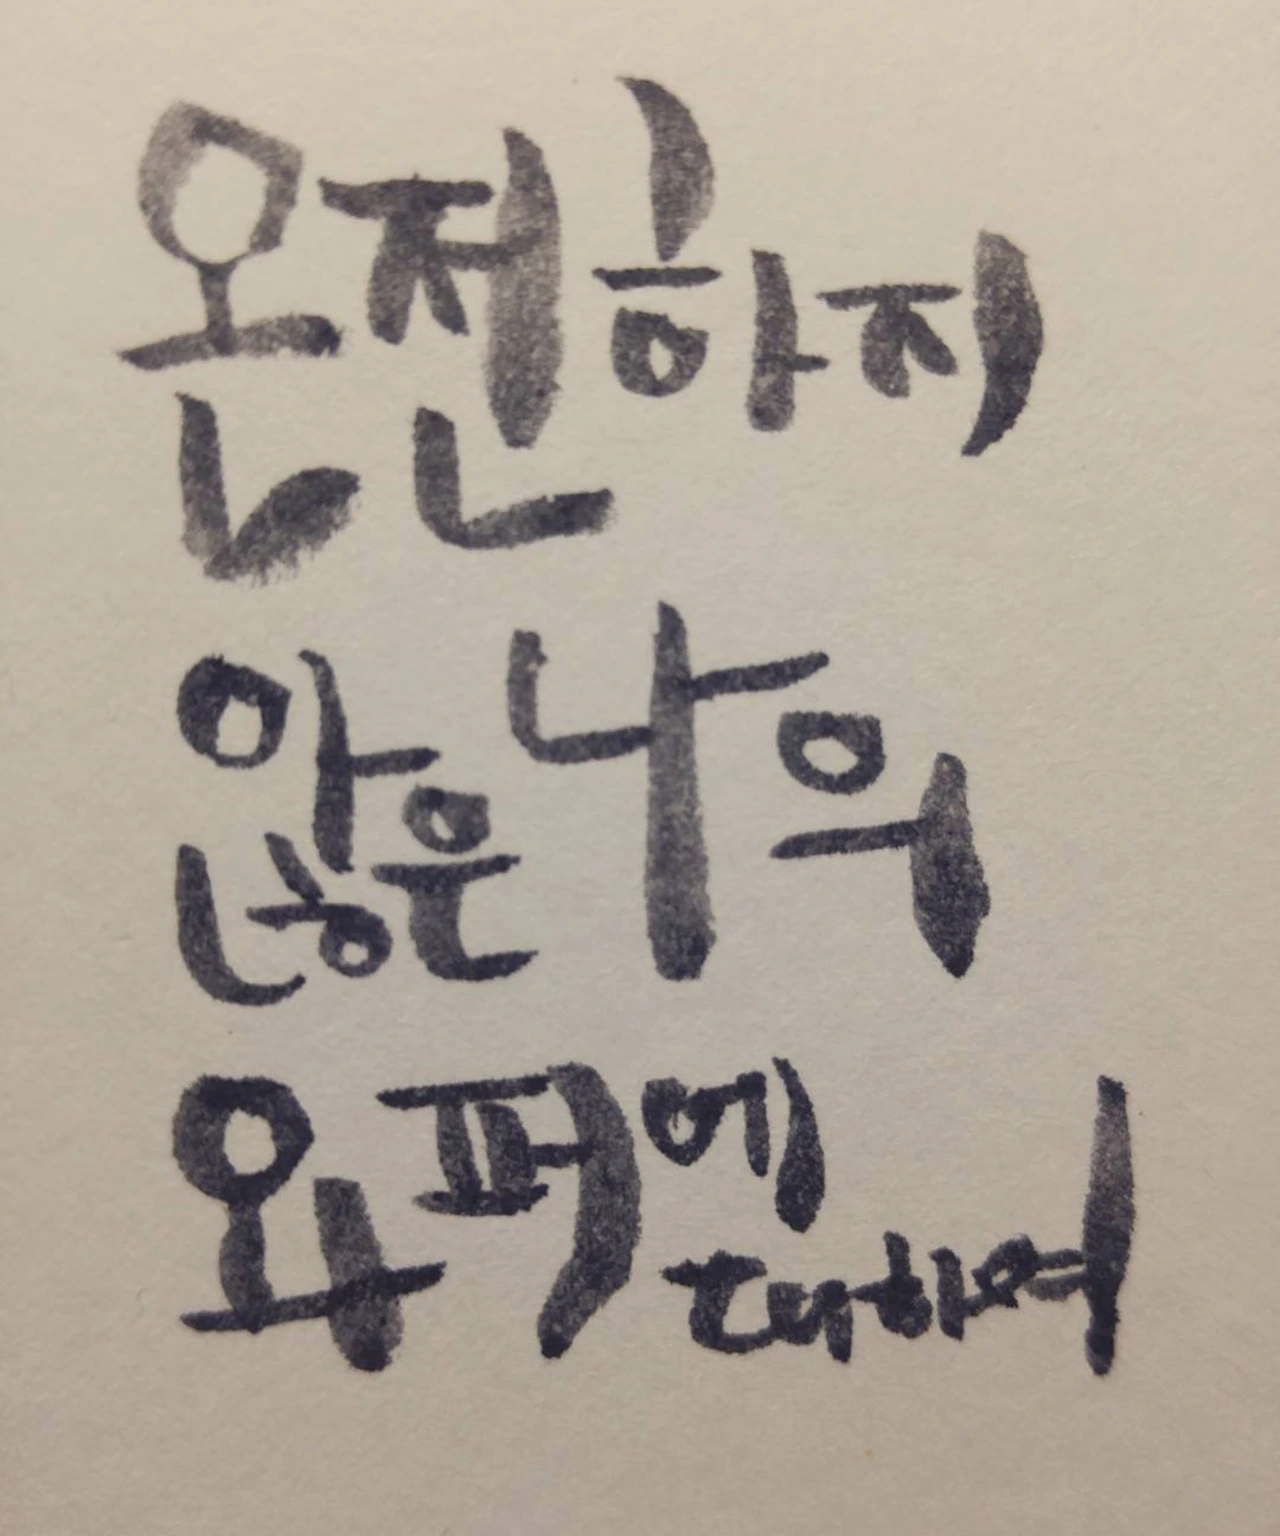 온전하지
않은 나의
와퍼에
대하여